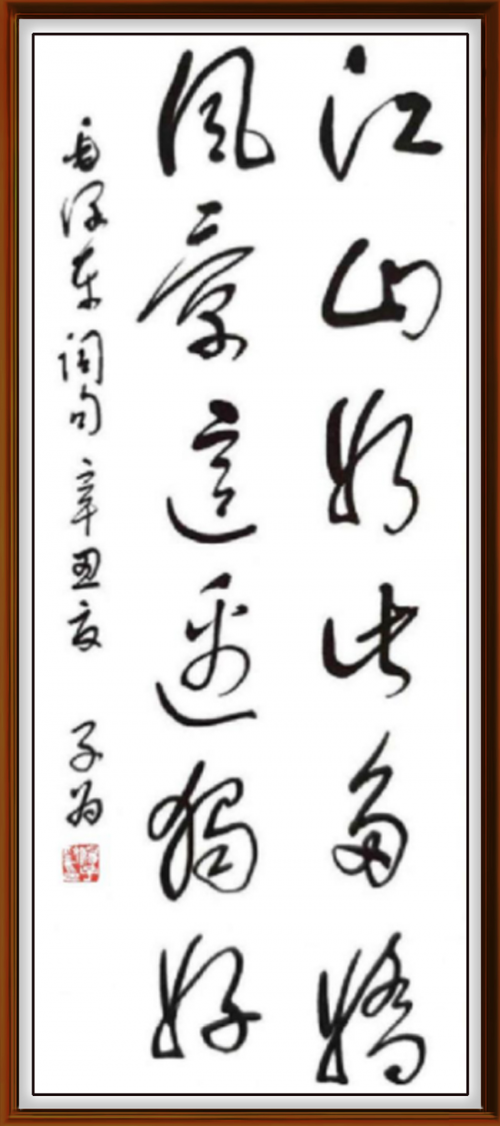 江山如此多娇
风景這边獨好
毛泽东词句 辛丑夏 子为